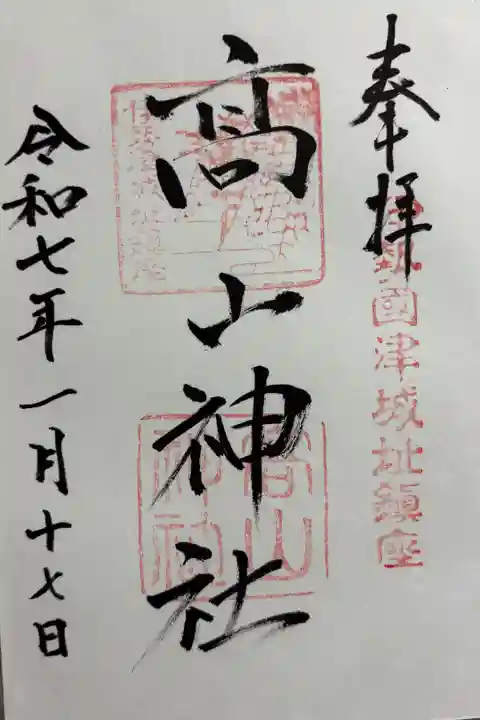 奉拝
勢國津城址鎮座
高山神社
高山神社
令和七年一月十七日